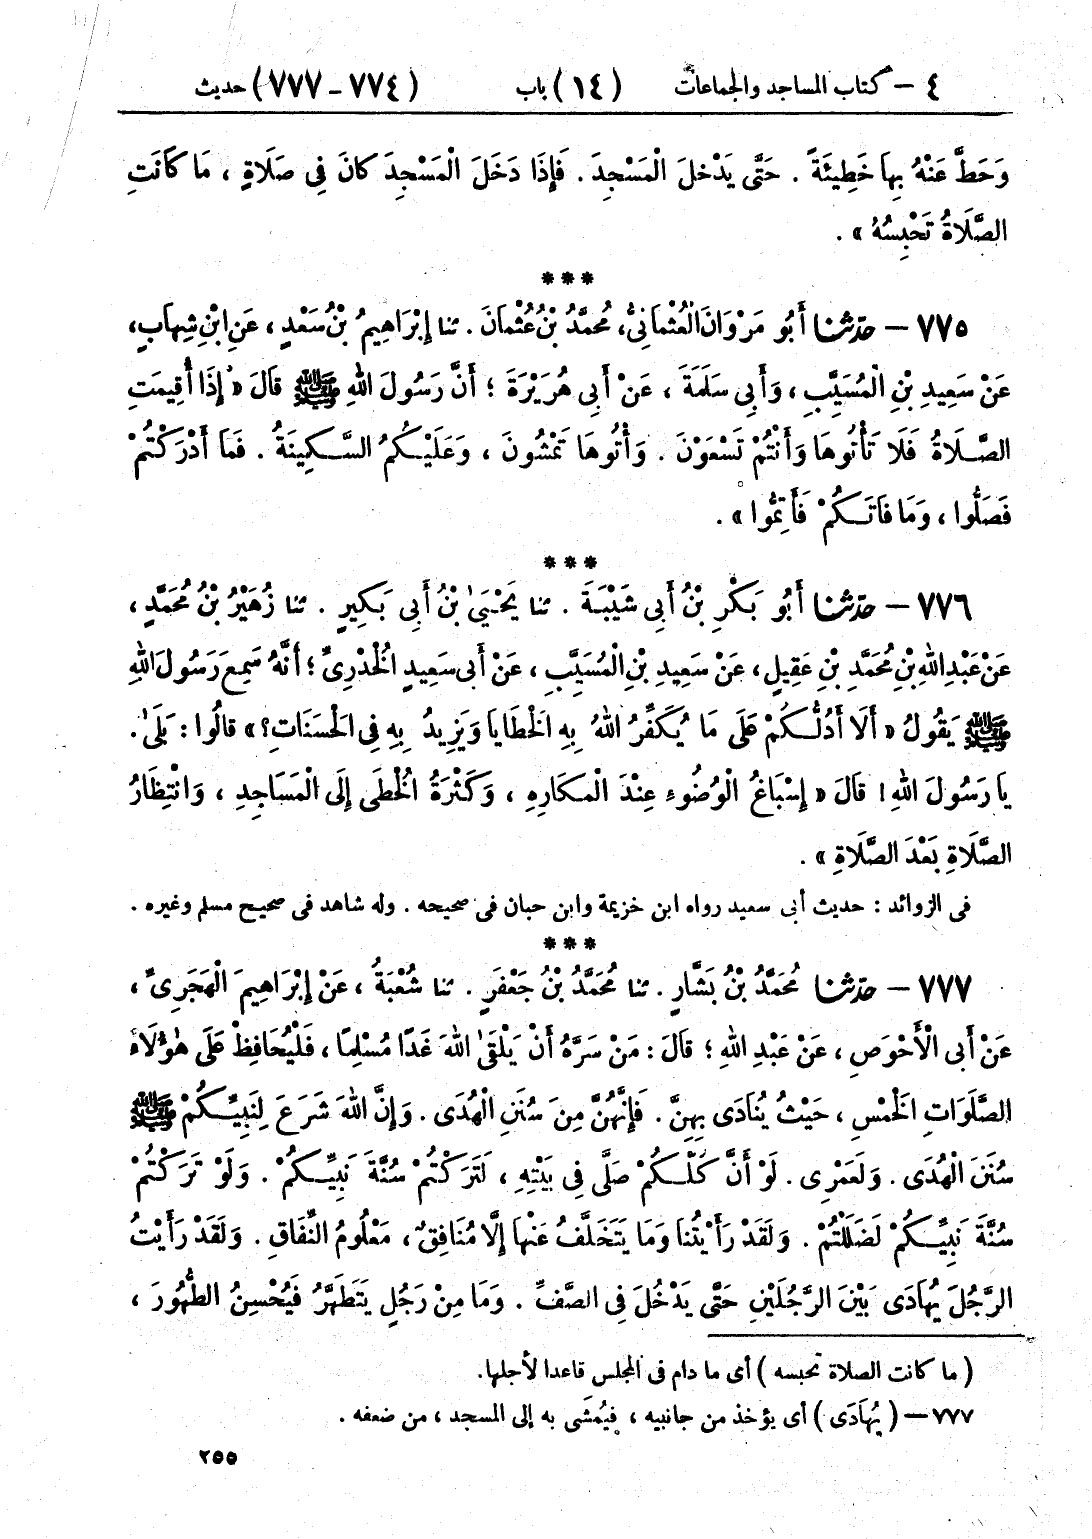 ٤ – كتاب المساجد والجماعات (١٤) باب (٧٧٤ – ٧٧٧) حديث
وَحَطَّ عَنْهُ بِهَا خَطِيئَةً . حَتَّى يَدْخُلَ الْمَسْجِدَ . فَإِذَا دَخَلَ الْمَسْجِدَ كَانَ فِى صَلَاةٍ ، مَا كَانَتِ
الصَّلَاةُ تَحْبِسُهُ » .
***
٧٧٥ – حدّثنا أَبُو مَرْوَانَ الْعُثْمَانِىُّ، مُحَمَّدُ بْنُ عُثْمَانَ . ثنا إِبْرَاهِيمُ بْنُ سَعْدٍ ، عَنِ ابْنِ شِهَابٍ،
عَنْ سَعِيدِ بْنِ الْمُسَيَّبِ ، وَأَبِى سَلَمَةَ ، عَنْ أَبِى هُرَيْرَةَ ؛ أَنَّ رَسُولَ اللهِ ﷺ قَالَ « إِذَا أُقِيمَتِ
الصَّلَاةُ فَلَا تَأْتُوهَا وَأَنْتُمْ تَسْعَوْنَ . وَأْتُوهَا تَمْشُونَ ، وَعَلَيْكُمُ السَّكِينَةُ . فَمَا أَدْرَكْتُمْ
فَصَلُّوا ، وَمَا فَاتَكُمْ فَأَتِمُّوا » .
***
٧٧٦ – حدّثنا أَبُو بَكْرِ بْنُ أَبِى شَيْبَةَ . ثنا يَحْيَىٰ بْنُ أَبِى بَكِيرٍ . ثنا زُهَيْرُ بْنُ مُحَمَّدٍ ،
عَنْ عَبْدِ اللهِ بْنِ مُحَمَّدِ بْنِ عَقِيلٍ، عَنْ سَعِيدِ بْنِ الْمُسَيَّبِ ، عَنْ أَبِى سَعِيدٍ الْخُدْرِىِّ ؛ أَنَّهُ سَمِعَ رَسُولَ اللهِ
ﷺ يَقُولُ « أَلَا أَدُلُّكُمْ عَلَى مَا يُكَفِّرُ اللهُ بِهِ الْخَطَايَا وَيَزِيدُ بِهِ فِى الْحَسَنَاتِ؟ » قَالُوا : بَلَىٰ.
يَا رَسُولَ اللهِ! قَالَ « إِسْبَاغُ الْوُضُوءِ عِنْدَ الْمَكَارِهِ ، وَكَثْرَةُ الْخُطَى إِلَى الْمَسَاجِدِ ، وَانْتِظَارُ
الصَّلَاةِ بَعْدَ الصَّلَاةِ » .
فى الزوائد : حديث أبى سعيد رواه ابن خزيمة وابن حبان فى صحيحه . وله شاهد فى صحيح مسلم وغيره .
***
٧٧٧ – حدّثنا مُحَمَّدُ بْنُ بَشَّارٍ . ثنا مُحَمَّدُ بْنُ جَعْفَرٍ . ثنا شُعْبَةُ ، عَنْ إِبْرَاهِيمَ الْهَجَرِىِّ ،
عَنْ أَبِى الْأَحْوَصِ ، عَنْ عَبْدِ اللهِ ؛ قَالَ : مَنْ سَرَّهُ أَنْ يَلْقَىٰ اللهَ غَدًا مُسْلِمًا ، فَلْيُحَافِظْ عَلَى هٰؤُلَاءِ
الصَّلَوَاتِ الْخَمْسِ ، حَيْثُ يُنَادَى بِهِنَّ . فَإِنَّهُنَّ مِنَ سُنَنِ الْهُدَى . وَإِنَّ اللهَ شَرَعَ لِنَبِيِّكُمْ ﷺ
سُنَنَ الْهُدَى . وَلَعَمْرِى . لَوْ أَنَّ كُلَّكُمْ صَلَّى فِى بَيْتِهِ ، لَتَرَكْتُمْ سُنَّةَ نَبِيِّكُمْ . وَلَوْ تَرَكْتُمْ
سُنَّةَ نَبِيِّكُمْ لَضَلَلْتُمْ . وَلَقَدْ رَأَيْتُنَا وَمَا يَتَخَلَّفُ عَنْهَا إِلَّا مُنَافِقٌ ، مَعْلُومُ النِّفَاقِ . وَلَقَدْ رَأَيْتُ
الرَّجُلَ يُهَادَى بَيْنَ الرَّجُلَيْنِ حَتَّى يَدْخُلَ فِى الصَّفِّ . وَمَا مِنْ رَجُلٍ يَتَطَهَّرُ فَيُحْسِنُ الطُّهُورَ ،
( ما كانت الصلاة تحبسه ) أى ما دام فى المجلس قاعدا لأجلها.
٧٧٧ – ( يُهَادَى ) أى يؤخذ من جانبيه ، فيُمشَى به إلى المسجد ، من ضعفه .
٢٥٥